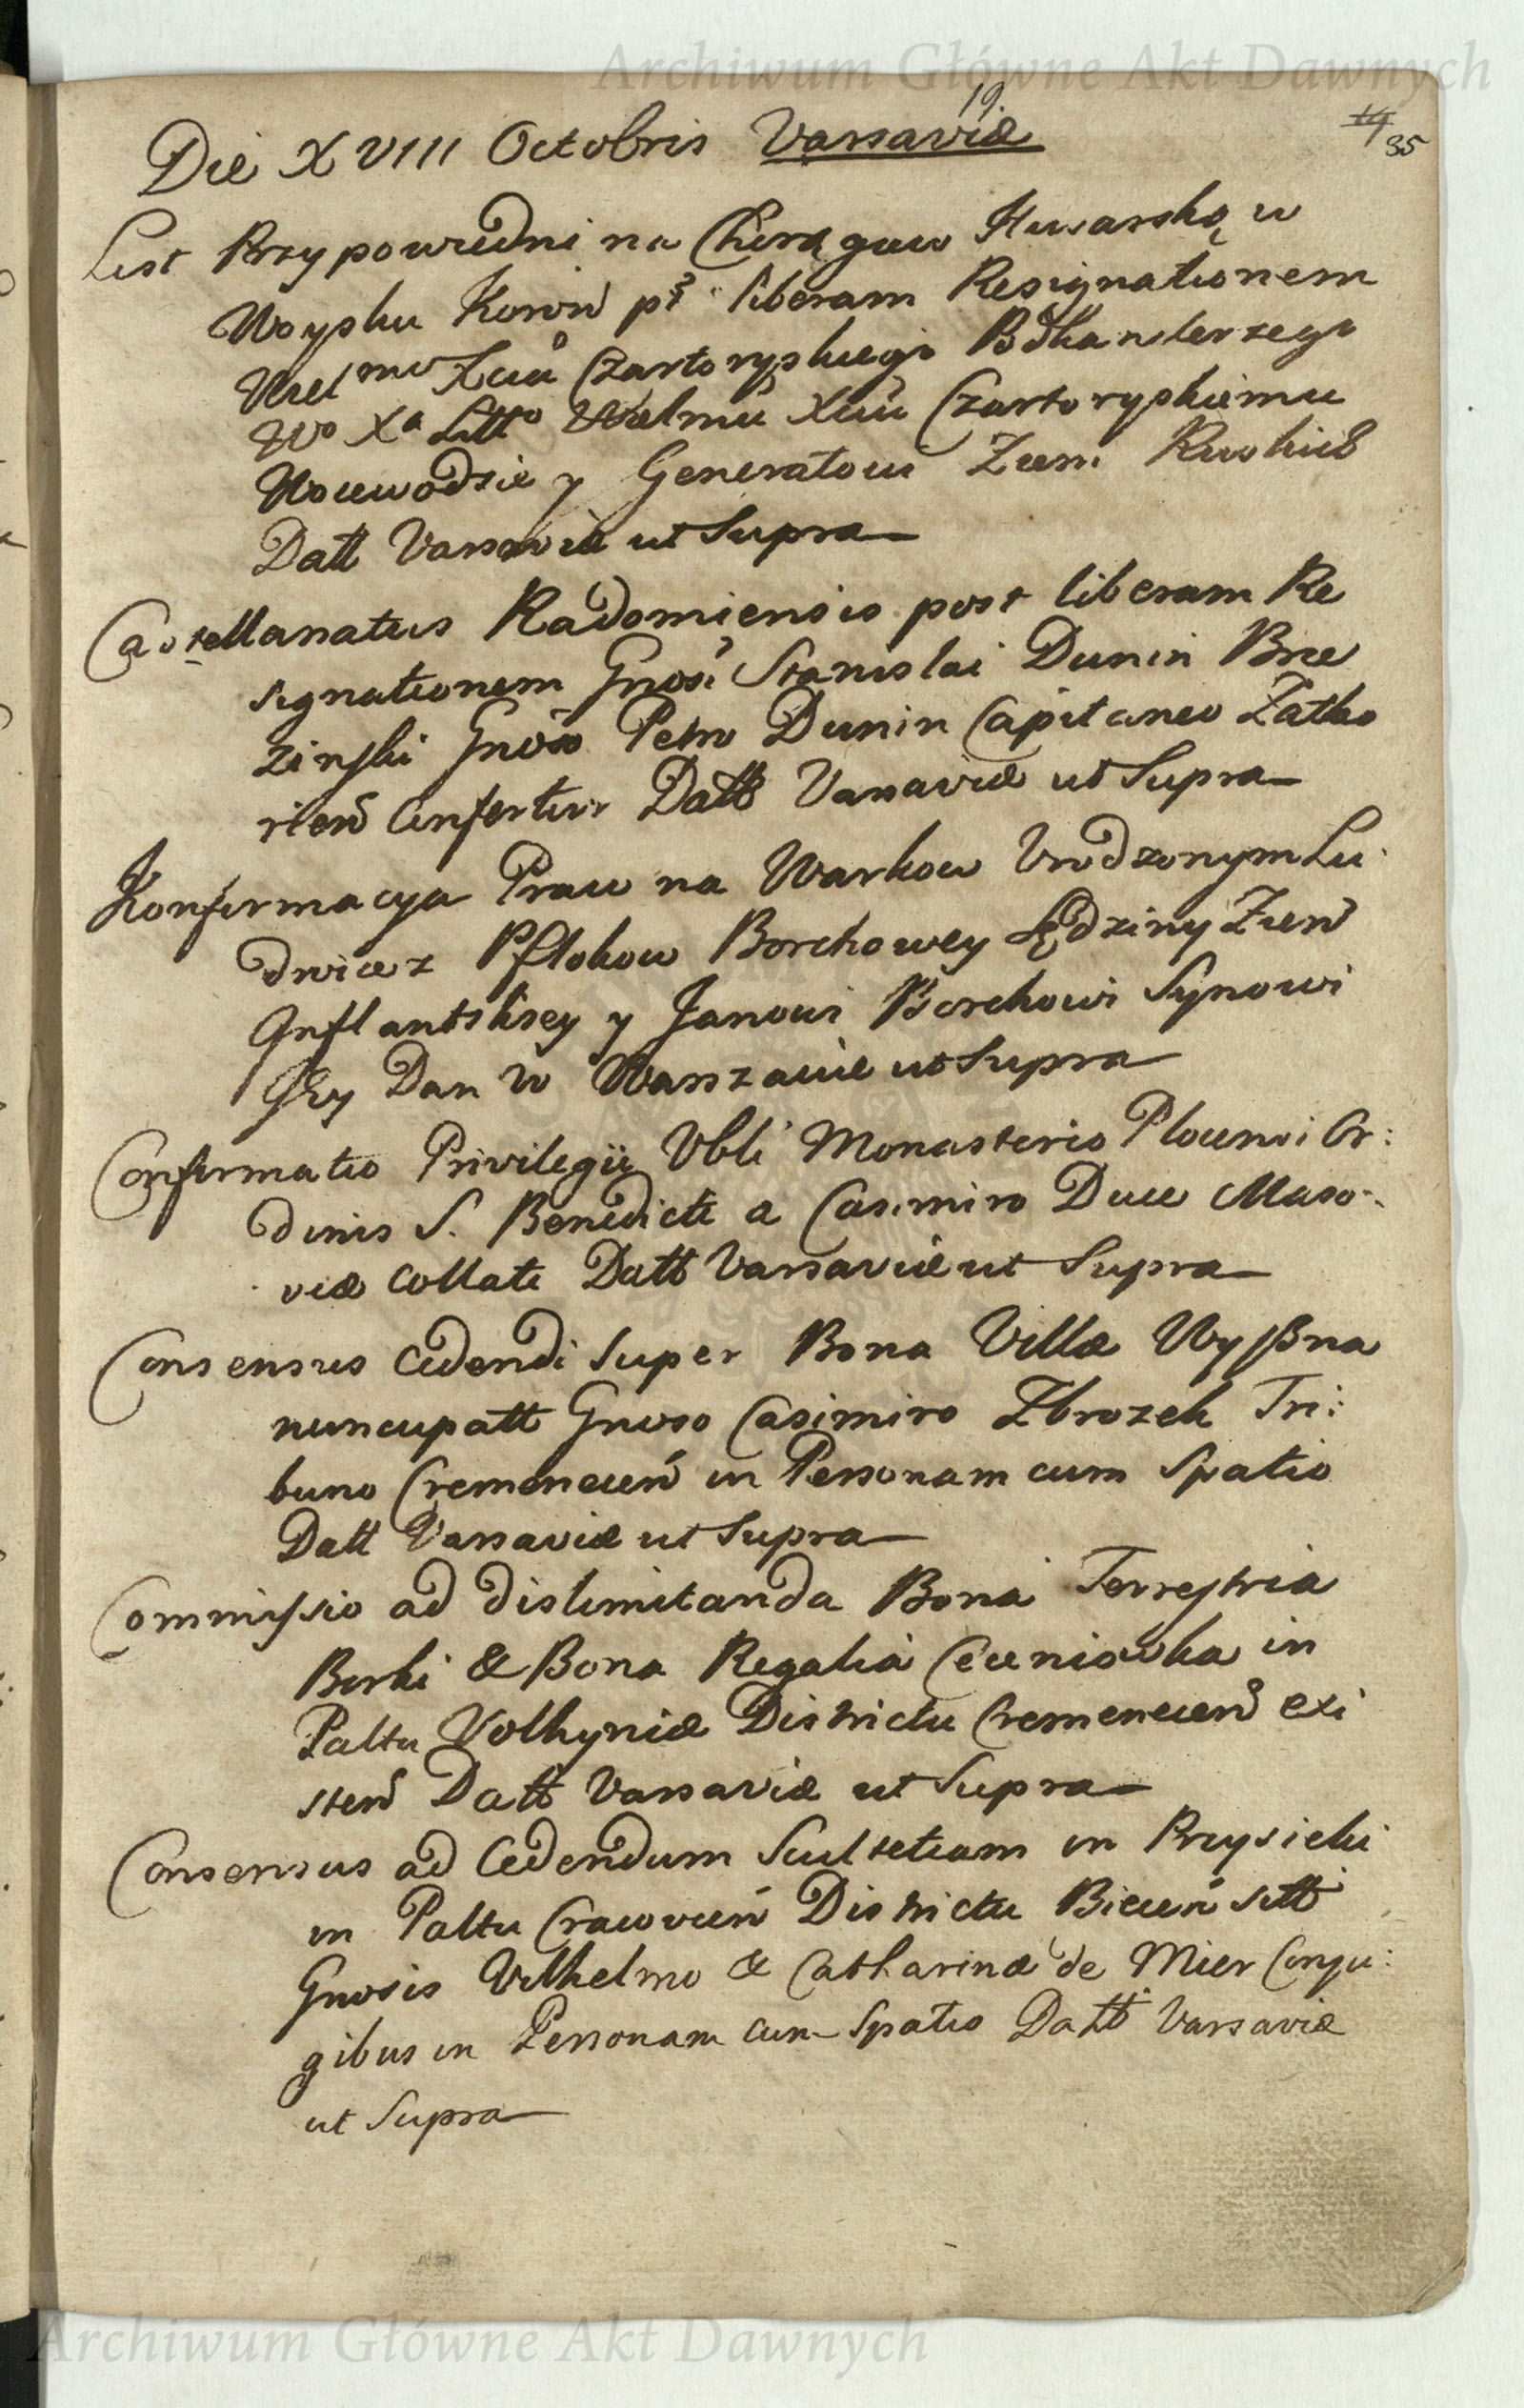 Archiwum Główne Akt Dawnych
19.
19 35
Die XVIII Octobris Varsaviæ
List Przypowiedni na Chorągiew Husarską w
Woysku Koron̄ pt liberam Resignationem
Wielmo Xciu Czartoryskiego Podkanclerzego
Wo Xa Litto Wielmu Xciu Czartoryskiemu
Woiewodzie y Generałowi Ziem Ruskich
Datt Varsaviæ ut Supra
Castellanatus Radomiensis post liberam Re
signationem Gnosi Stanislai Dunin Brze
zinski Gnoso Petro Dunin Capitaneo Zatho
rien̄ Confertur Datt Varsaviæ ut Supra
Konfirmacya Praw na Warkow Vrodzonym Lu:
dwice z Pflokow Borchowey Sędziny Ziem̄
Inflantskiey y Janowi Borchowi Synowi
Iey Dan w Warszawie ut Supra
Confirmatio Privilegii Vbli Monasterio Plocensi Or:
dinis S. Benedicti a Casimiro Duce Maso:
viæ collati Datt Varsaviæ ut Supra
Consensus cedendi super Bona Villæ Wyssna
nuncupatt Gnoso Casimiro Zbrozek Tri:
buno Cremenecen̄ in Personam cum Spatio
Datt Varsaviæ ut Supra
Commissio ad dislimitanda Bona Terrestria
Borki & Bona Regalia Ceceniowka in
Paltu Volhyniæ Districtu Cremenecen̄ exi
sten̄ Datt Varsaviæ ut Supra
Consensus ad Cedendum Scultetiam in Przysieki
in Paltu Cracovien̄ Districtu Biecen̄ sitt
Gnosis Vilhelmo & Catharinæ de Mier Conju:
gibus in Personam cum Spatio Datt Varsaviæ
ut Supra
Archiwum Główne Akt Dawnych